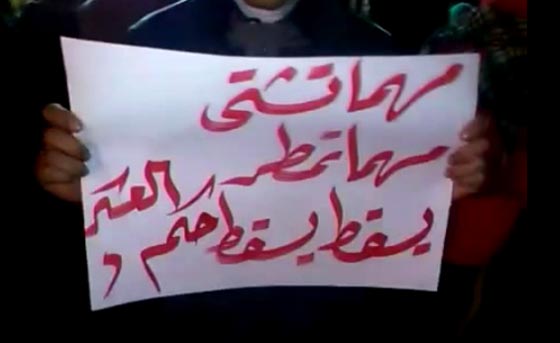 مهما تشتى
مهما تمطر
يسقط يسقط حكم العسكر